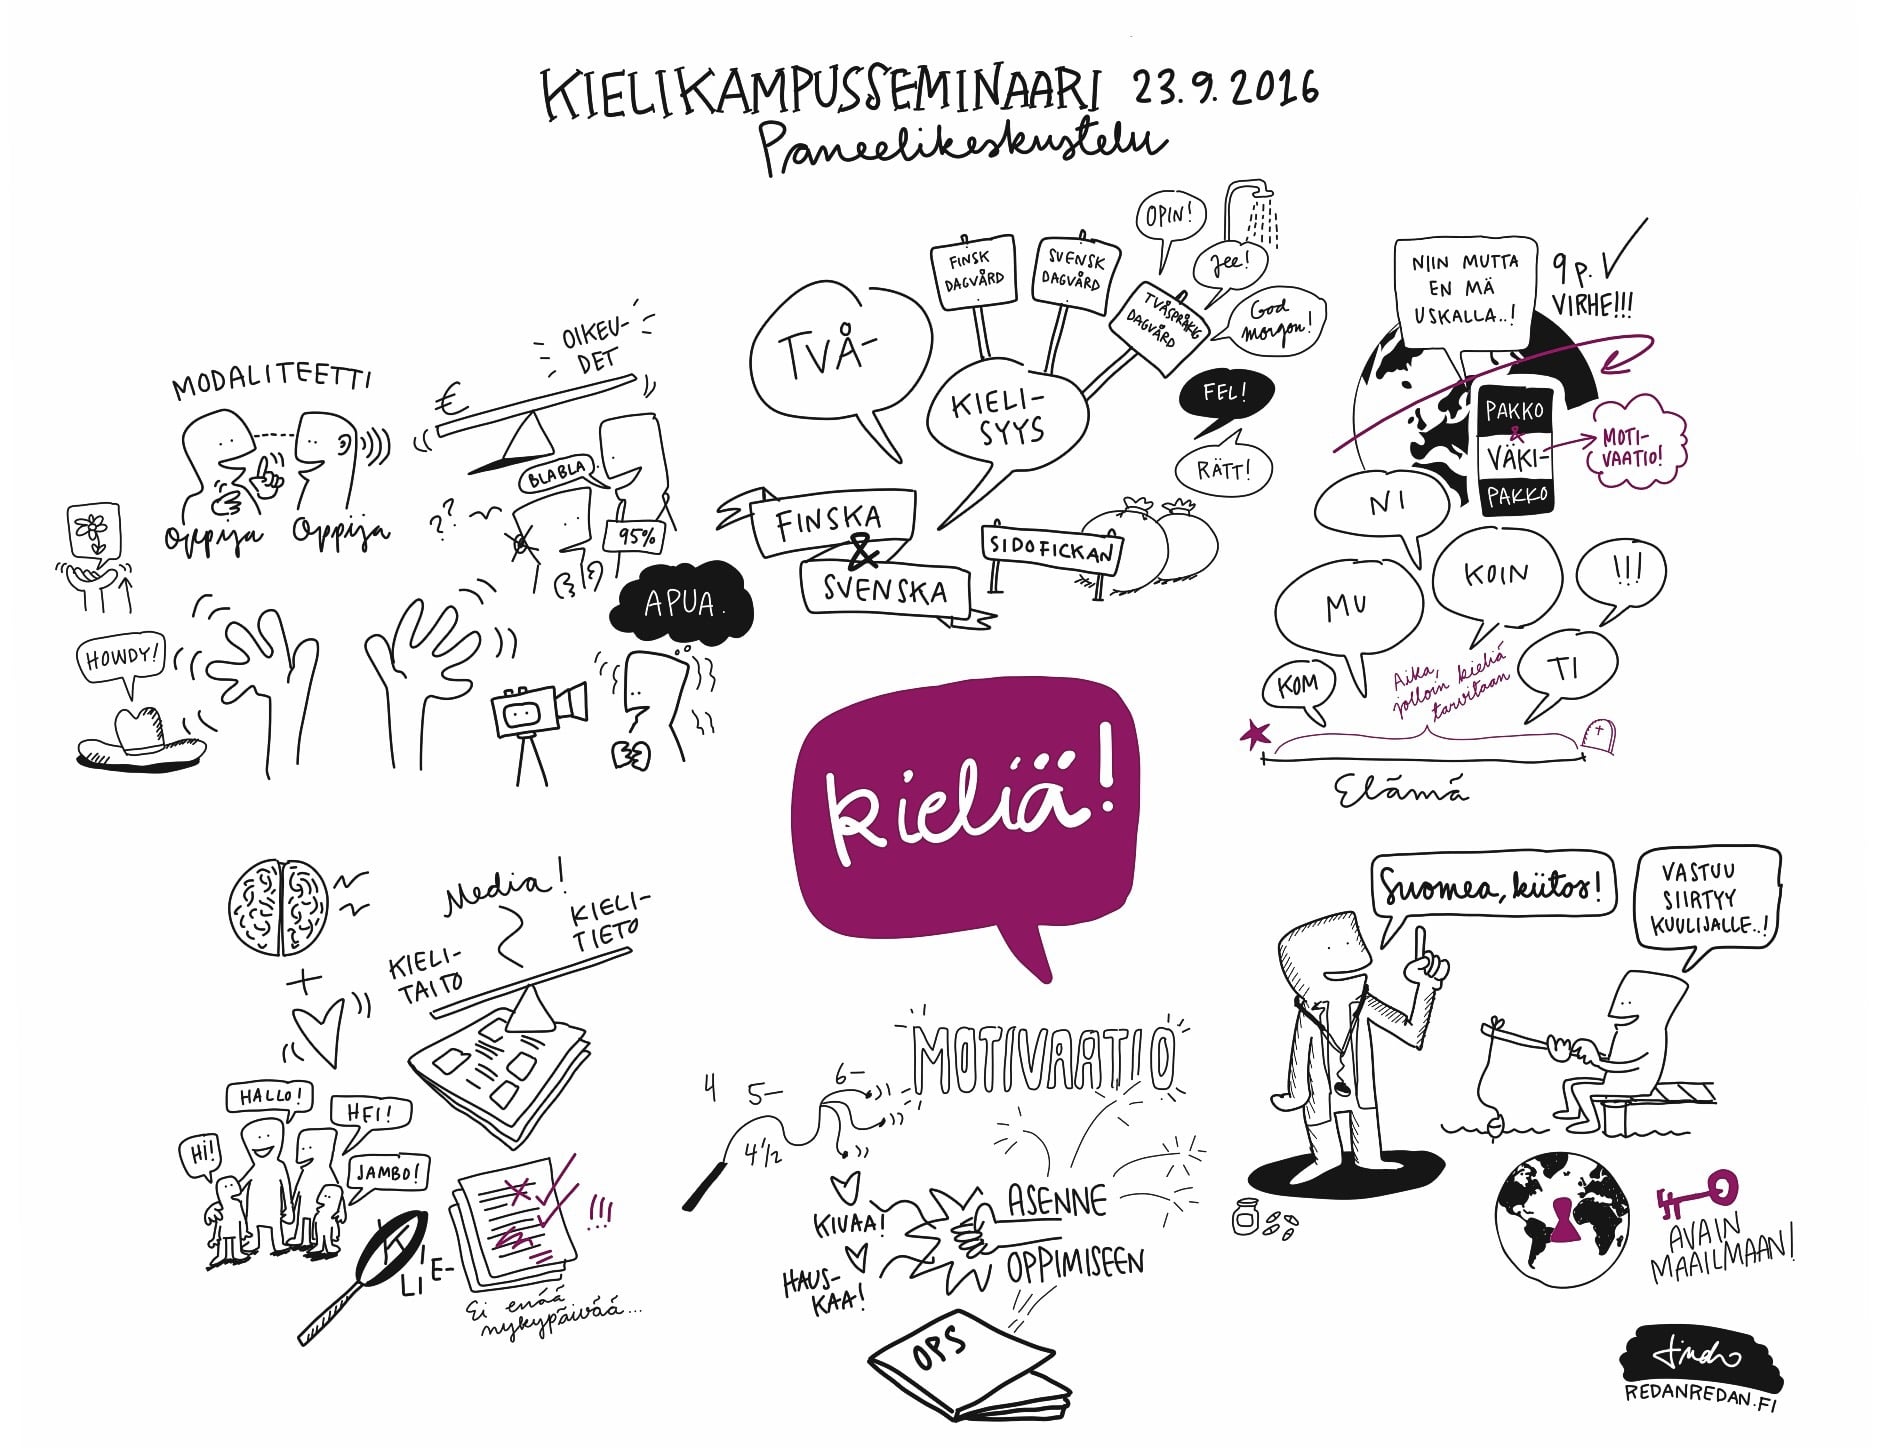 KIELIKAMPUSSEMINAARI 23.9.2016
Paneelikeskustelu
MODALITEETTI
Oppija
Oppija
HOWDY!
€
OIKEU-
DET
BLABLA
??
95%
APUA.
TVÅ-
KIELI-
SYYS
FINSK
DAGVÅRD
SVENSK
DAGVÅRD
TVÅSPRÅKIG
DAGVÅRD
OPIN!
Jee!
God
morgon!
FEL!
RÄTT!
FINSKA
&
SVENSKA
SIDOFICKAN
NIIN MUTTA
EN MÄ
USKALLA..!
9 p.
VIRHE!!!
PAKKO
&
VÄKI-
PAKKO
MOTI-
VAATIO!
NI
MU
KOIN
!!!
KOM
TI
Aika,
jolloin kieliä
tarvitaan
Elämä
kieliä!
+
HALLO!
HEI!
Hi!
JAMBO!
Media!
KIELI-
TAITO
KIELI-
TIETO
KIE-
LI
!!!
Ei enää
nykypäivää...
4
4½
5-
6-
MOTIVAATIO
KIVAA!
HAUS-
KAA!
ASENNE
OPPIMISEEN
OPS
Suomea, kiitos!
VASTUU
SIIRTYY
KUULIJALLE..!
AVAIN
MAAILMAAN!
REDANREDAN.FI